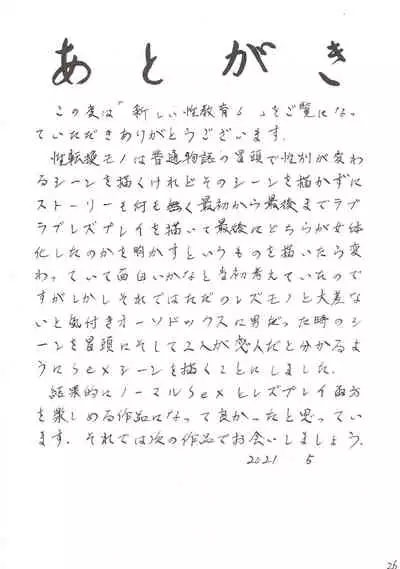 あとがき
この度は「新しい性教育6」をご覧になっ
ていただきありがとうございます.
性転換モノは普通物語の冒頭で性別が変わ
るシーンを描くけれどそのシーンを描かずに
ストーリーも何も無く最初から最後までラブ
ラブレズプレイを描いて最後にどちらが女体
化したのかを明かすというものを描いたら変
わっていて面白いかなと当初考えていたので
すがしかしそれではただのレズモノと大差な
いと気付きオーソドックスに男だった時のシ
ーンを冒頭にそして2人が恋人だと分かるよ
うにSexシーンを描くことにしました.
結果的にノーマルSexとレズプレイ両方
を楽しめる作品になって良かったと思ってい
ます. それでは次の作品でお会いしましょう.
2021 5
26